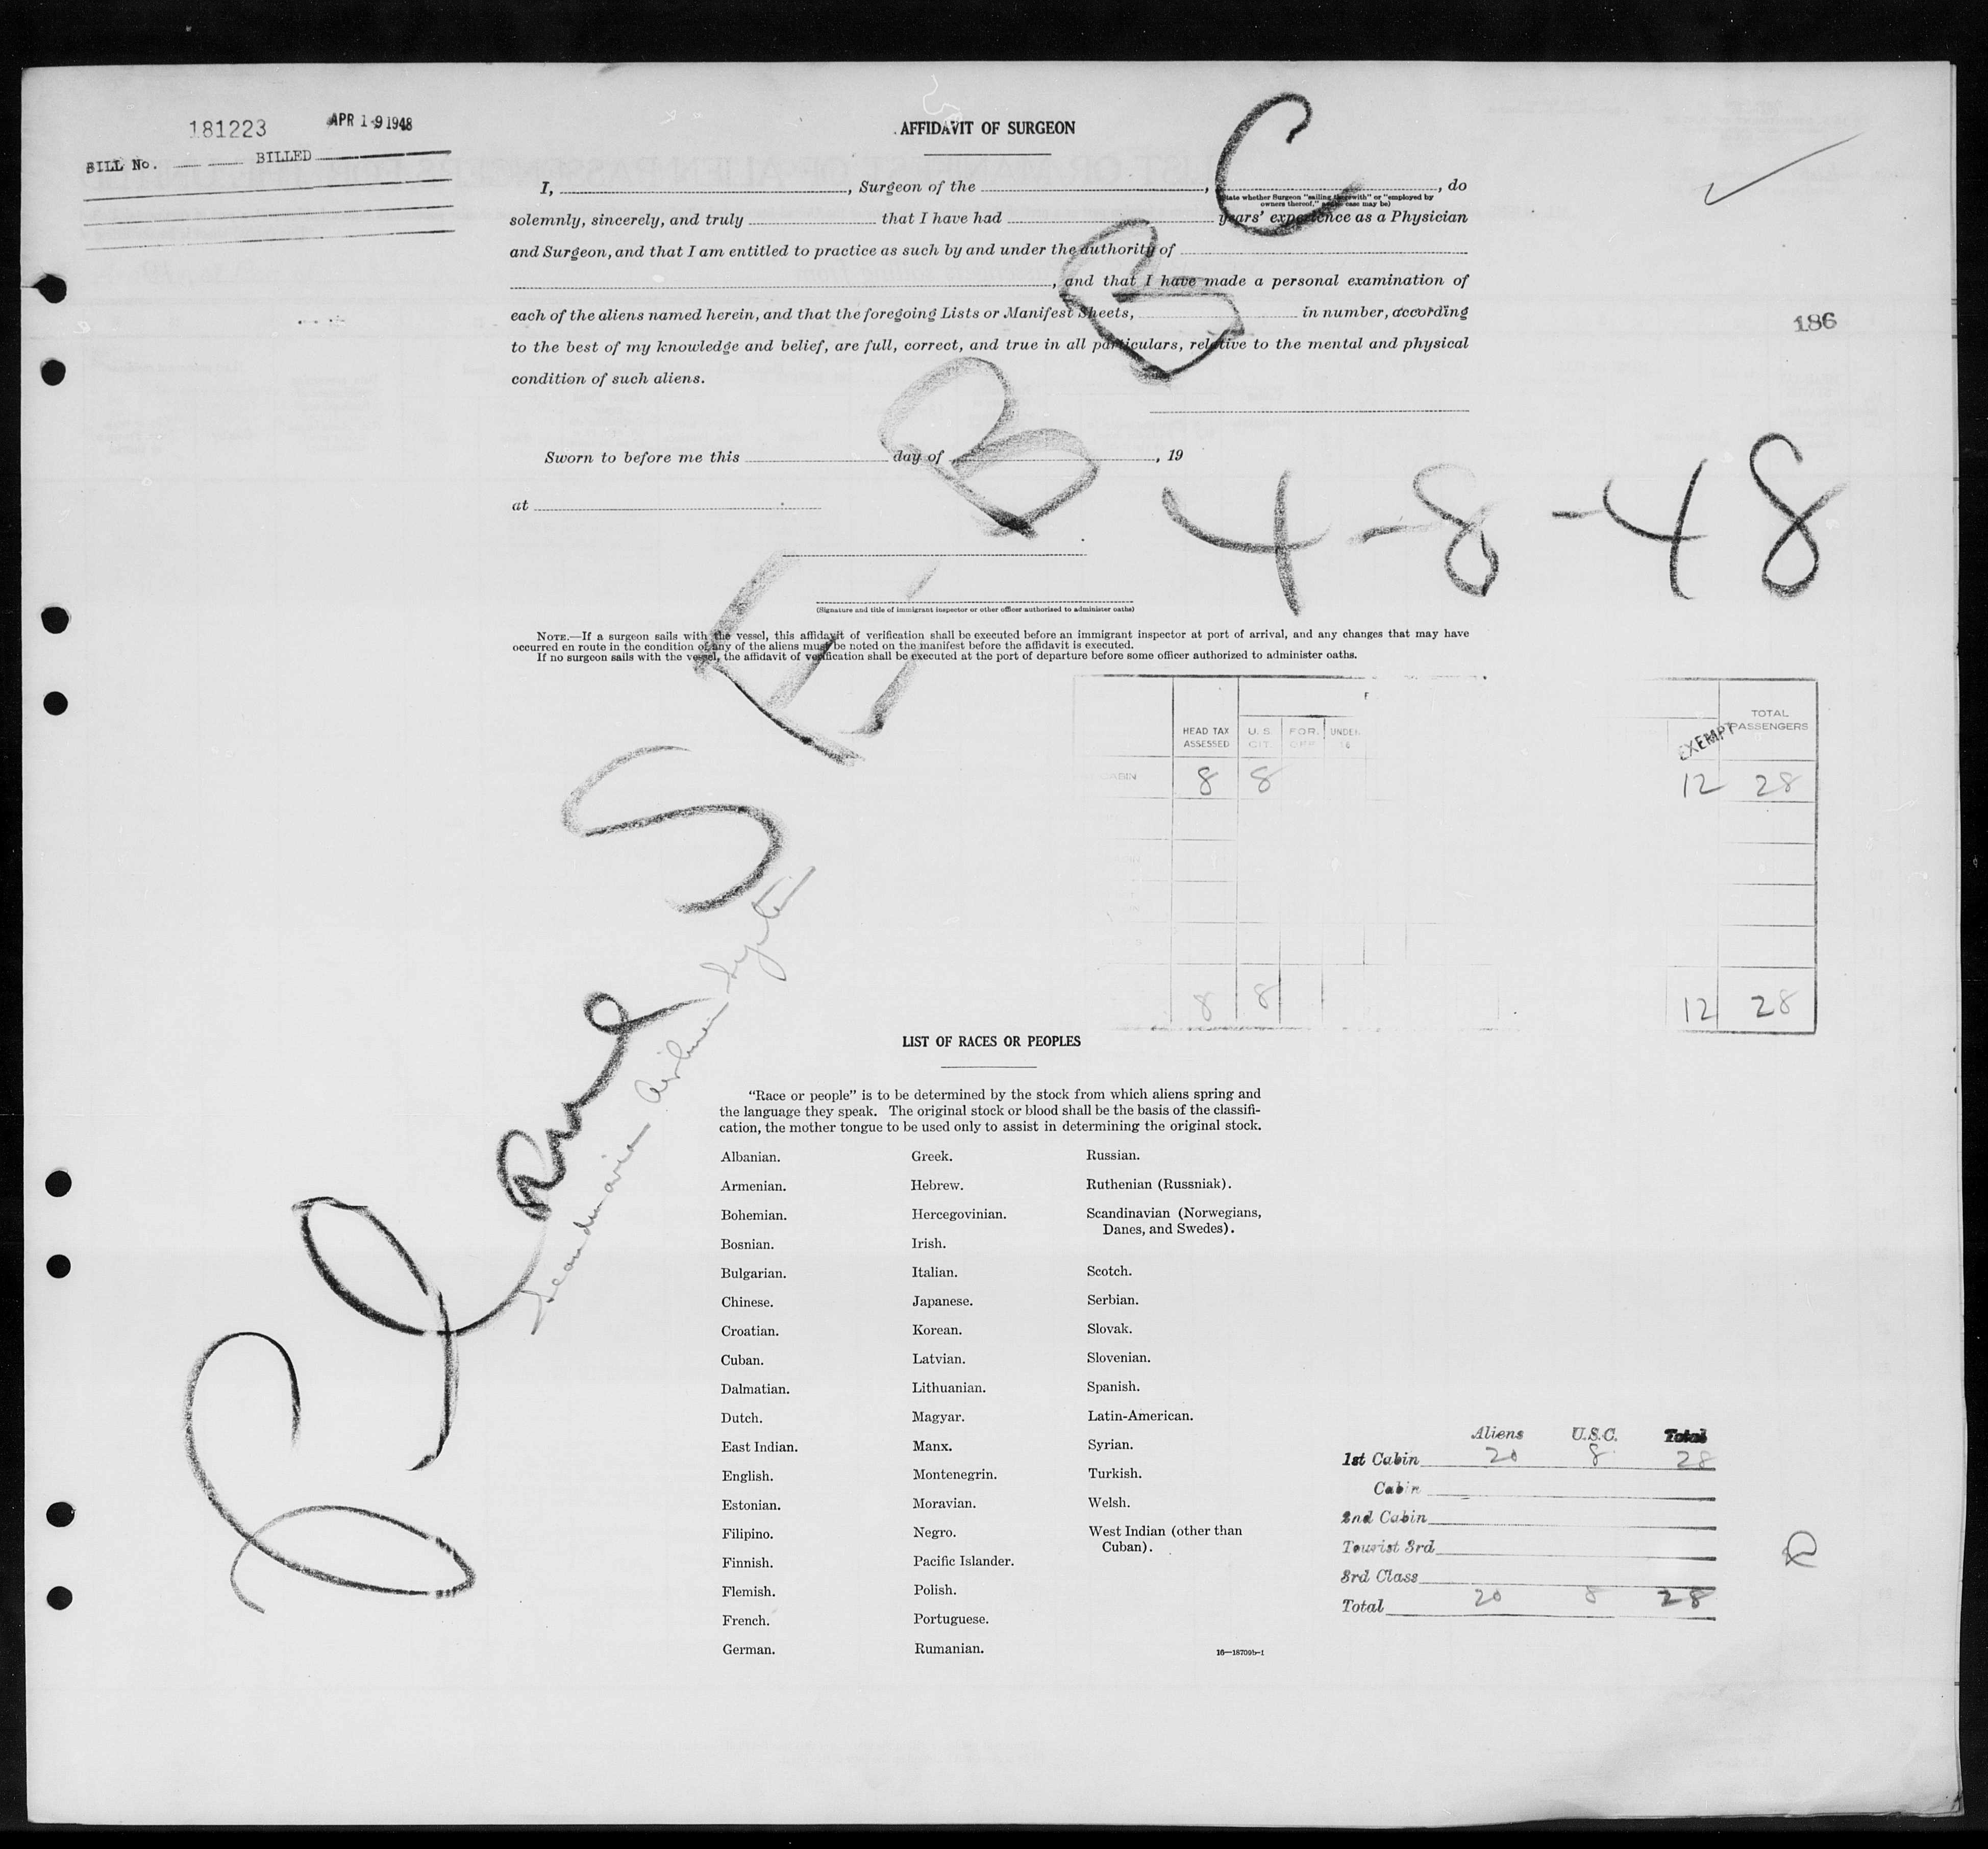 181223 APR 1-9 1948
BILL No. BILLED
AFFIDAVIT OF SURGEON
I, , Surgeon of the , , do
(State whether Surgeon "sailing therewith" or "employed by
owners thereof," as the case may be)
solemnly, sincerely, and truly that I have had years' experience as a Physician
and Surgeon, and that I am entitled to practice as such by and under the authority of
, and that I have made a personal examination of
each of the aliens named herein, and that the foregoing Lists or Manifest Sheets, in number, according
to the best of my knowledge and belief, are full, correct, and true in all particulars, relative to the mental and physical
condition of such aliens.
186
Sworn to before me this day of , 19
at
4-8-48
(Signature and title of immigrant inspector or other officer authorized to administer oaths)
NOTE.—If a surgeon sails with the vessel, this affidavit of verification shall be executed before an immigrant inspector at port of arrival, and any changes that may have
occurred en route in the condition of any of the aliens must be noted on the manifest before the affidavit is executed.
If no surgeon sails with the vessel, the affidavit of verification shall be executed at the port of departure before some officer authorized to administer oaths.
Plane SE BBC
Scandinavian Airlines System
HEAD TAX ASSESSED U.S. CIT. FOR. UNDER 16 EXEMPT TOTAL PASSENGERS
CABIN 8 8 12 28
8 8 12 28
LIST OF RACES OR PEOPLES
"Race or people" is to be determined by the stock from which aliens spring and
the language they speak. The original stock or blood shall be the basis of the classifi-
cation, the mother tongue to be used only to assist in determining the original stock.
Albanian. Greek. Russian.
Armenian. Hebrew. Ruthenian (Russniak).
Bohemian. Hercegovinian. Scandinavian (Norwegians,
Danes, and Swedes).
Bosnian. Irish.
Bulgarian. Italian. Scotch.
Chinese. Japanese. Serbian.
Croatian. Korean. Slovak.
Cuban. Latvian. Slovenian.
Dalmatian. Lithuanian. Spanish.
Dutch. Magyar. Latin-American.
East Indian. Manx. Syrian.
English. Montenegrin. Turkish.
Estonian. Moravian. Welsh.
Filipino. Negro. West Indian (other than
Cuban).
Finnish. Pacific Islander.
Flemish. Polish.
French. Portuguese.
German. Rumanian.
16—18709b-1
Aliens U.S.C. Total
1st Cabin 20 8 28
Cabin
2nd Cabin
Tourist 3rd
3rd Class
Total 20 8 28